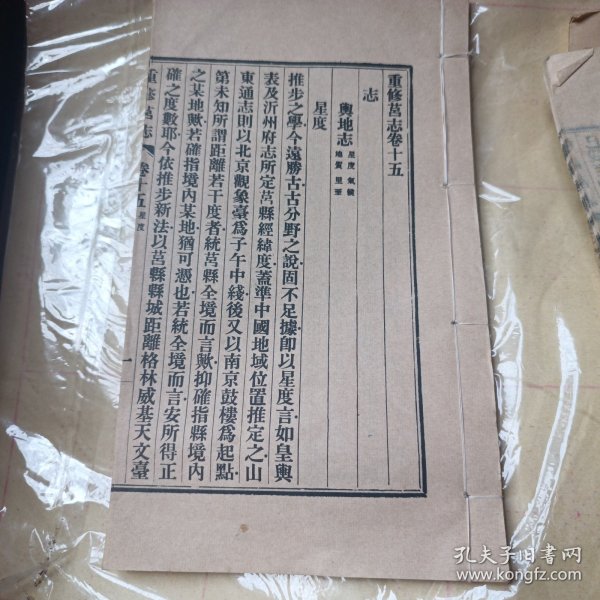 重修莒志卷十五
志
輿地志 星度 氣候
地質 里至
星度
推步之學今遠勝古古分野之說固不足據卽以星度言如皇輿
表及沂州府志所定莒縣經緯度蓋準中國地域位置推定之山
東通志則以北京觀象臺爲子午中綫後又以南京鼓樓爲起點
第未知所謂距離若干度者統莒縣全境而言歟抑確指縣境內
之某地歟若確指境內某地猶可憑也若統全境而言安所得正
確之度數耶今依推步新法以莒縣縣城距離格林威基天文臺
重修莒志 卷十五 星度 一
孔夫子旧书网
www.kongfz.com